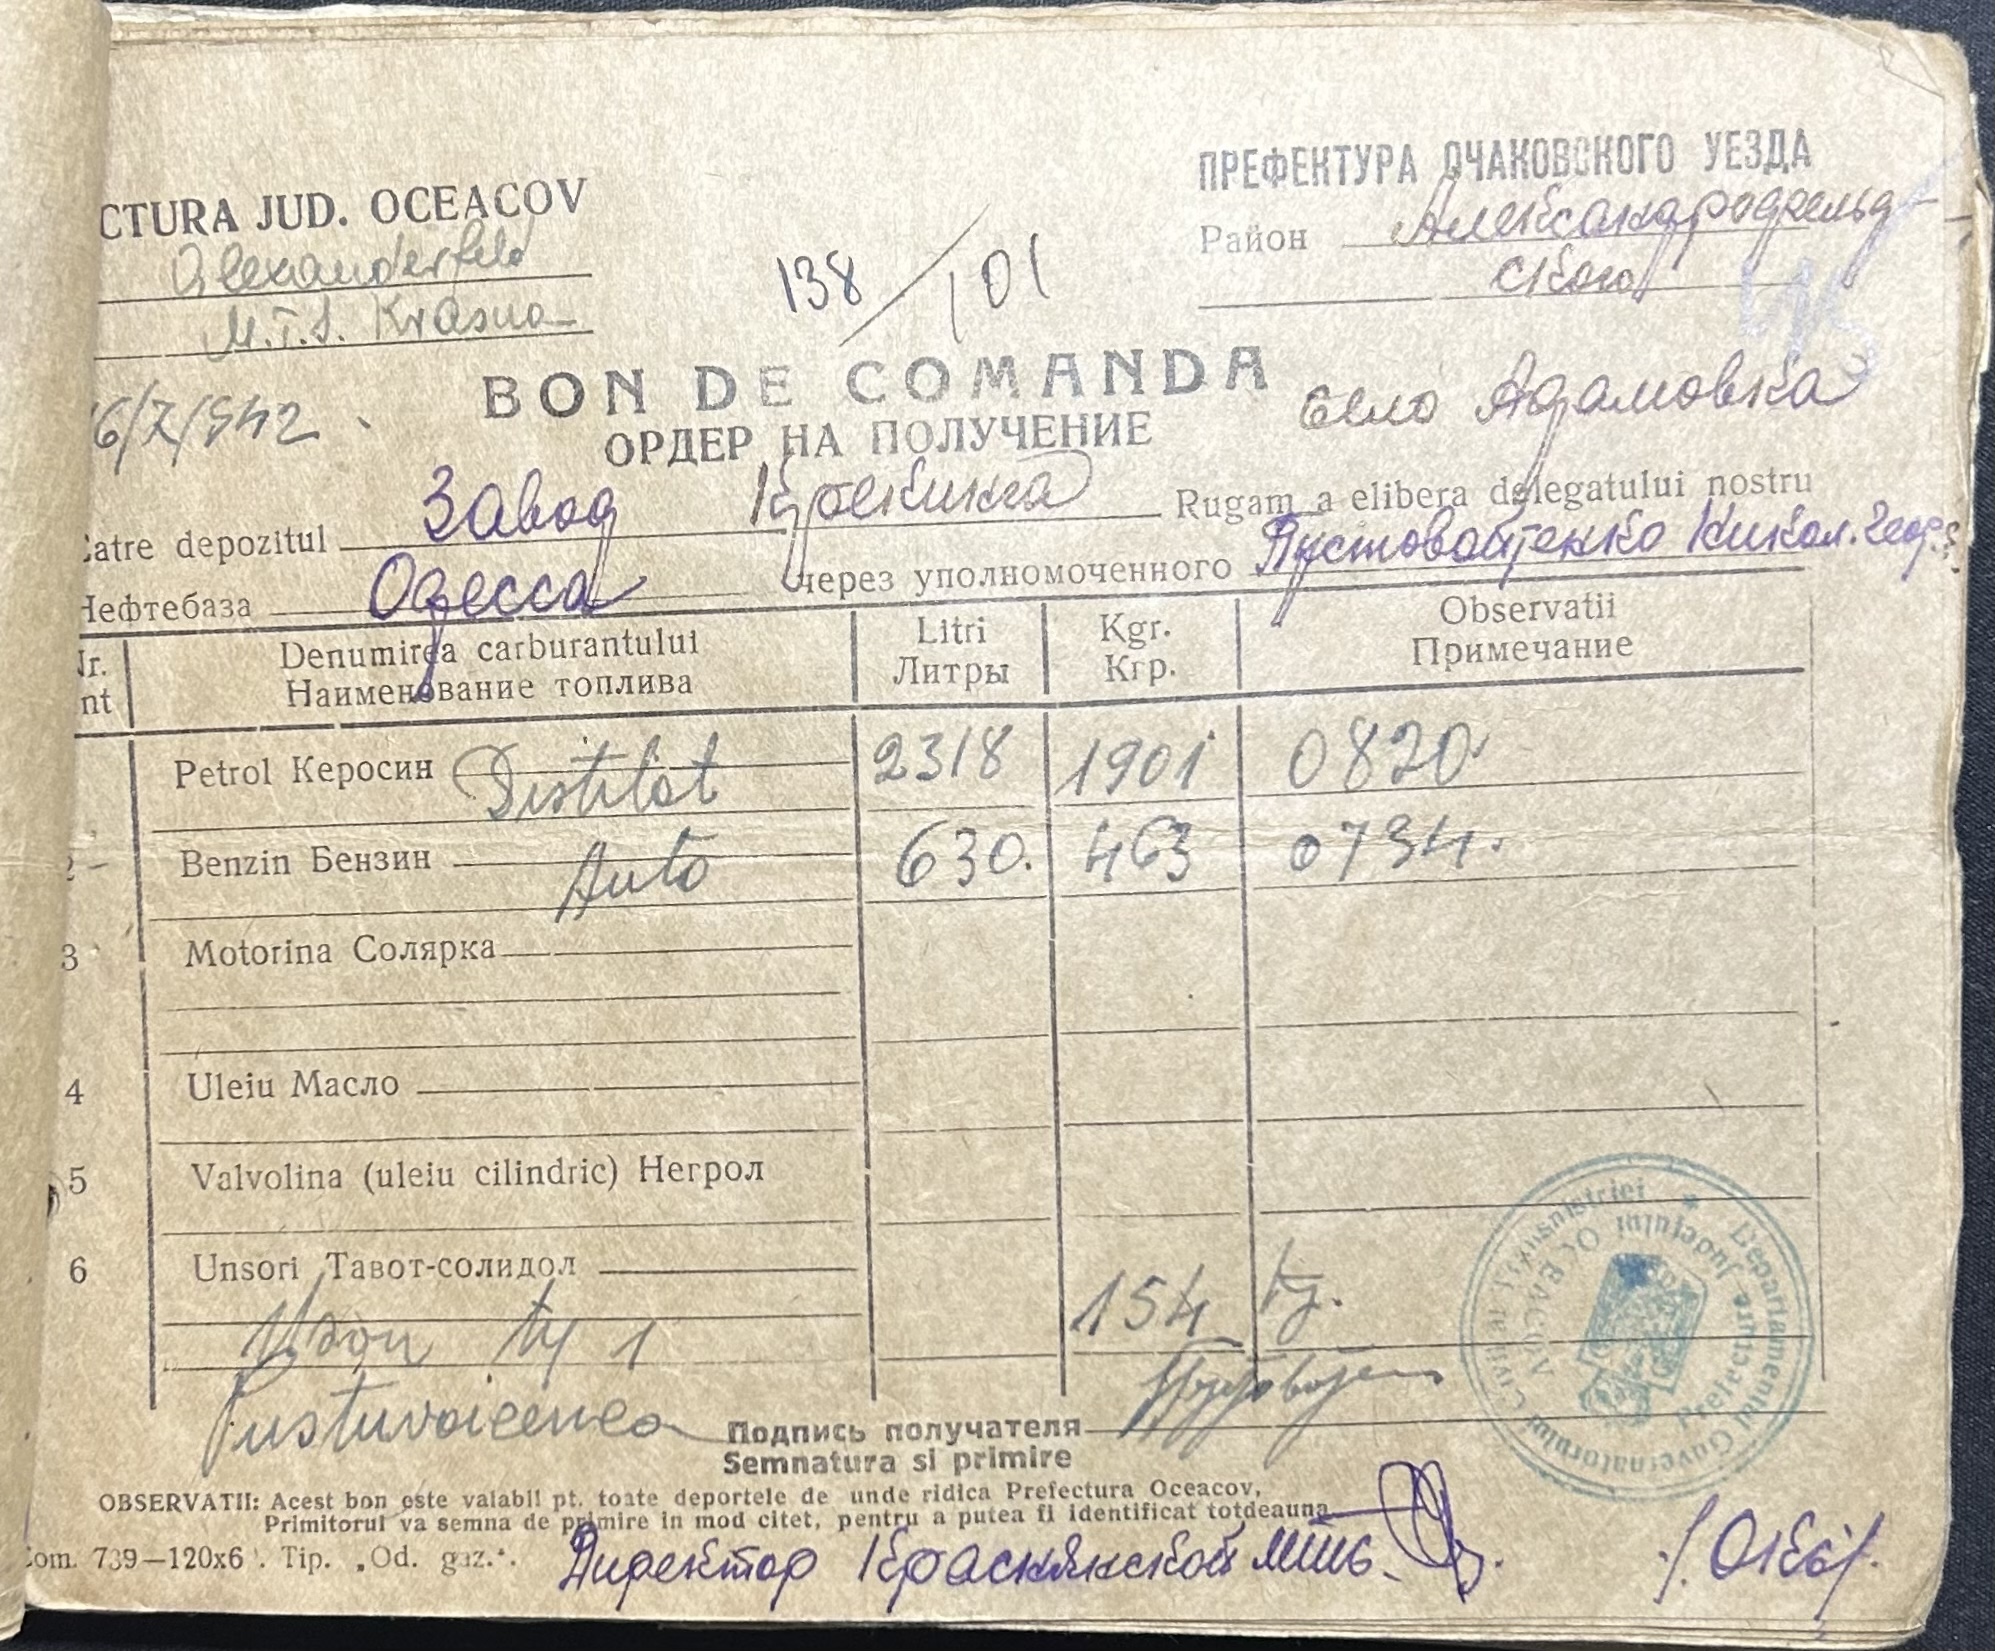 CTURA JUD. OCEACOV
Alexanderfeld
M.T.S. Krasna
ПРЕФЕКТУРА ОЧАКОВСКОГО УЕЗДА
Район Александрофельд-
ского
138/101
6/X/942
BON DE COMANDA
ОРДЕР НА ПОЛУЧЕНИЕ
село Адамовка
Catre depozitul Завод Rugam a elibera delegatului nostru
Нефтебаза Одесса через уполномоченного Пустовойтенко Никол. Георг.
Nr. Denumirea carburantului Litri Kgr. Observatii
nt Наименование топлива Литры Кгр. Примечание
Petrol Керосин Distilat 2318 1901 0820
2 Benzin Бензин Auto 630. 463 0734.
3 Motorina Солярка
4 Uleiu Масло
5 Valvolina (uleiu cilindric) Негрол
6 Unsori Тавот-солидол
1 154 kg.
Pustuvoicenco Подпись получателя
Semnatura si primire
OBSERVATII: Acest bon este valabil pt. toate deportele de unde ridica Prefectura Oceacov,
Primitorul va semna de primire in mod citet, pentru a putea fi identificat totdeauna
Com. 739—120x6 . Tip. „Od. gaz.“.
Директор Краснянской
Guvernatorului Civil al Transnistriei * Departamentul
Prefectura Judetului OCEACOV